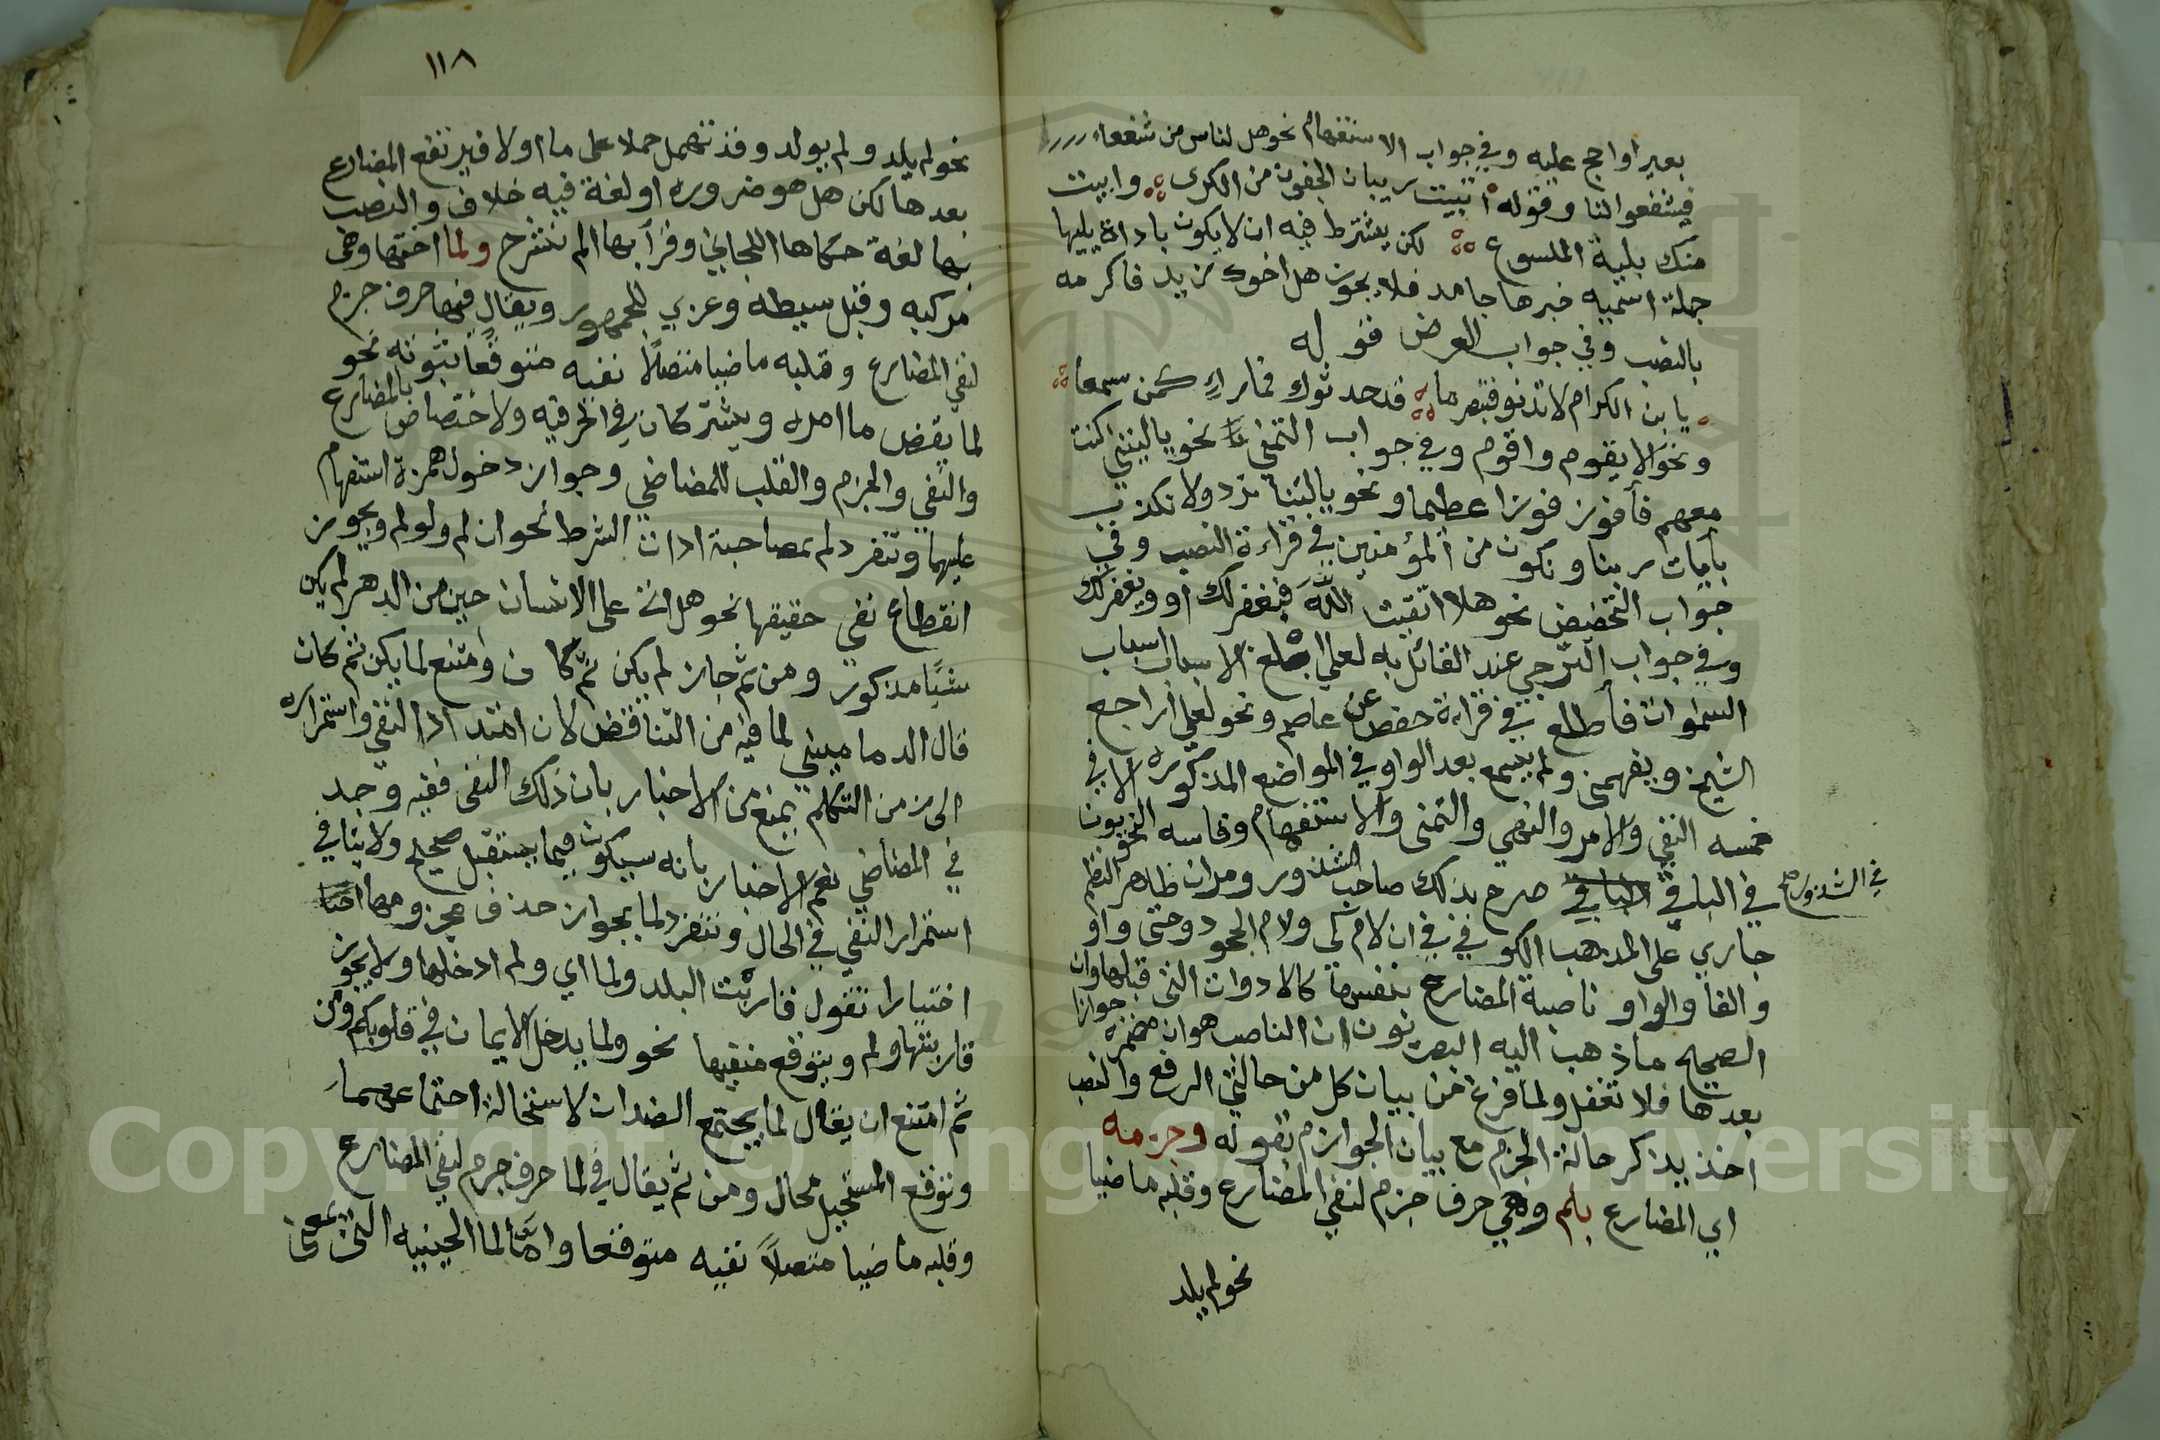 بعير او احج عليه وفي جواب الاستفهام نحو هل لناس من شفعاء
فيشفعوا لنا وقوله اتبيت ريان الجفون من الكرى وابيت
منك بليلة الملسوع لكن يشترط فيه ان لا يكون باداة يليها
جملة اسميه خبرها جامد فلا يجوز هل اخوك زيد فاكرمه
بالنصب وفي جواب العرض قوله
يا بن الكرام لا تدنو فتبصر ما قد حدثوك فما راء كمن سمعا
ونحو الا يقوم واقوم وفي جواب التمني نحو يا ليتني كنت
معهم فأفوز فوزا عظيما ونحو يا ليتنا نرد ولا نكذب
بآيات ربنا ونكون من المؤمنين في قراءة النصب وفي
جواب التحضيض نحو هلا اتقيت الله فيغفر لك او ويغفر لك
وفي جواب الترجي عند القائل به لعلي ابلغ الاسباب اسباب
السموات فأطلع في قراءة حفص عن عاصم ونحو لعلي اراجع
الشيخ ويفهمني ولم يسمع بعد الواو في المواضع المذكوره الا في
خمسه النفي والامر والنهي والتمني والاستفهام وقاسه النحويون
في الباقي صرح بذلك صاحب الشذور ومران ظاهر النظم
في الشذور صح
جاري على المذهب الكوفي في ان لام كي ولام الجحود وحتى واو
والفا والواو ناصبة المضارع بنفسها كالادوات التي قبلها وان
الصحيح ما ذهب اليه البصريون ان الناصب هو ان مضمرة جوازا
بعدها فلا تغفل ولما فرغ من بيان كل من حالتي الرفع والنصب
اخذ يذكر حالة الجزم مع بيان الجوازم بقوله وجزمه
اي المضارع بلم وهي حرف جزم لنفي المضارع وقلبه ماضيا
نحو لم يلد
١١٨
نحو لم يلد ولم يولد وقد تهمل حملا على ما او لا فيرتفع المضارع
بعدها لكن هل هو ضرورة او لغة فيه خلاف والنصب
بها لغة حكاها اللحياني وقرأ بها الم نشرح ولما اختها وهي
مركبه وقيل بسيطه وعزي للجمهور ويقال فيها حرف جزم
لنفي المضارع وقلبه ماضيا متصلا نفيه متوقعا ثبوته نحو
لما يقض ما امره ويشتركان في الحرفيه والاختصاص بالمضارع
والنفي والجزم والقلب للمضاضي وجواز دخول همزة استفهام
عليهما وتنفرد لم بمصاحبة ادات الشرط نحو ان لم ولو لم ويجوز
انقطاع نفي حقيقها نحو هل اتى على الانسان حين من الدهر لم يكن
شيئا مذكور ومن ثم جاز لم يكن ثم كان وامتنع لما يكن ثم كان
قال الدماميني لما فيه من التناقض لان امتداد النفي واستمراره
الى زمن التكلم يمنع من الاخبار بان ذلك النفي فقيه وجد
في المضاضي نعم الاخبار بانه سيكون فيما يستقبل صحيح ولا ينافي
استمرار النفي في الحال وتنفرد لما بجواز حذف مجزومها
اختيارا تقول قاربت البلد ولما اي ولم ادخلها ولا يجوز
قاربتها ولم وبتوقع منفيها نحو ولما يدخل الايمان في قلوبكم ومن
ثم امتنع ان يقال لما يجتمع الضدان لاستحالة اجتماعهما
وتوقع المستحيل محال ومن ثم يقال في لما حرف جزم لنفي المضارع
وقلبه ماضيا متصلا نفيه متوقعا واما لما الحينيه التي بمعنى
Copyright © King Saud University